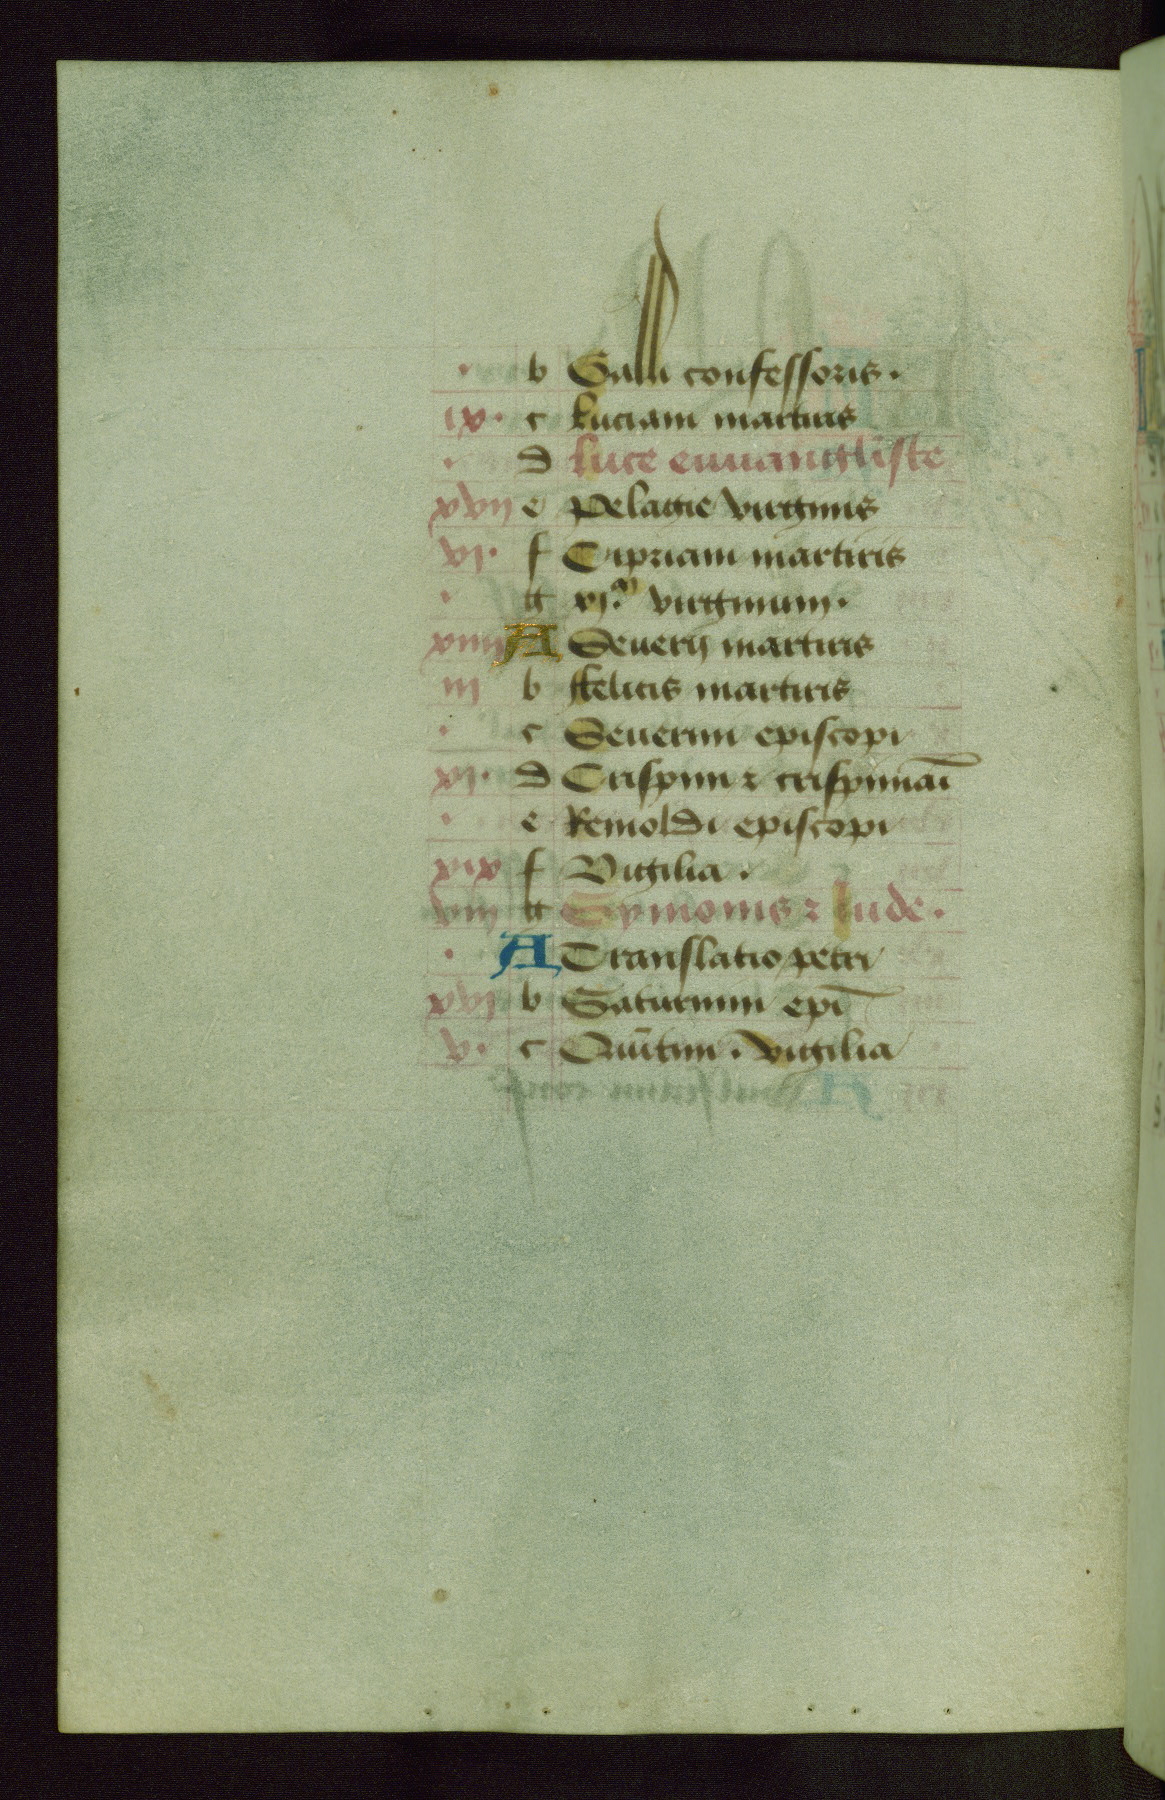 . b Galli confessoris .
ix . c Luciani martiris
. d Luce euuangliste
xvii e Pelagie virginis
vi . f Cipriani martiris
. g xi . m virginum .
xiiii A Seuerij martiris
iii b ffelicis martiris
. c Seuerini episcopi
xi . d Crispini ⁊ crispiniai
. e Remoldi episcopi
xix f Vigilia .
viii g Symonis ⁊ Iude .
. A Translatio petri
xvi b Saturnini epi
v . c Quītini . vigilia